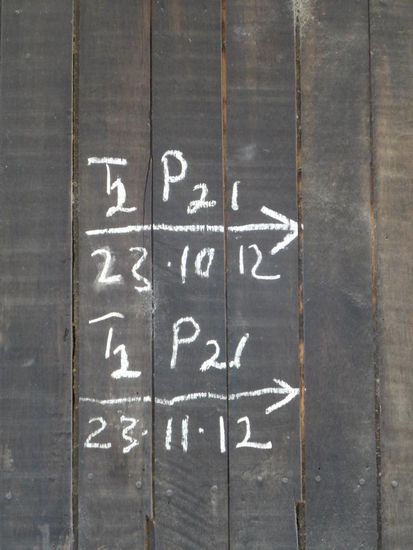 T2 P21
23·10 12
T2 P21
23·11·12